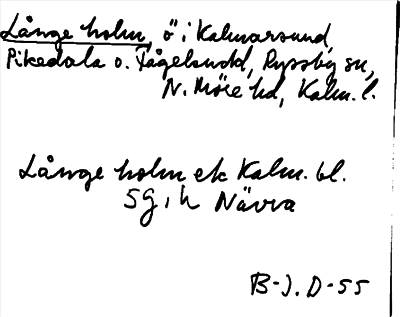 Långe holm, ö i Kalmarsund,
Pikedala o. Fågelsudd, Ryssby sn,
N. Möre hd, Kalm. l.
Långe holm ek Kalm. bl.
5g, h Nävra
B-J. D-55